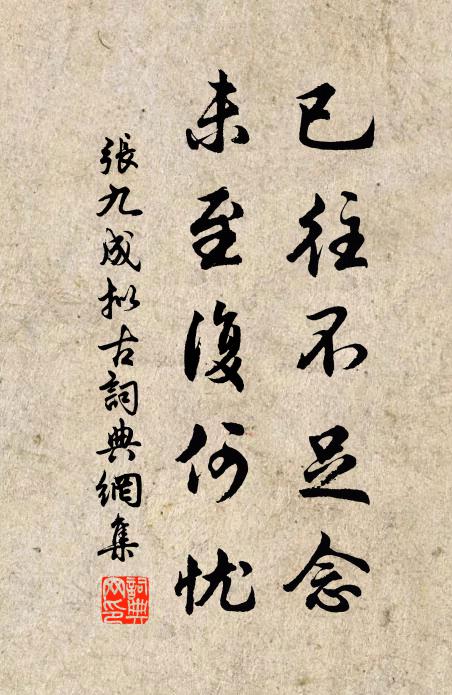 已往不足念
未至復何忧
張九成拟古詞典網集
詞典网印